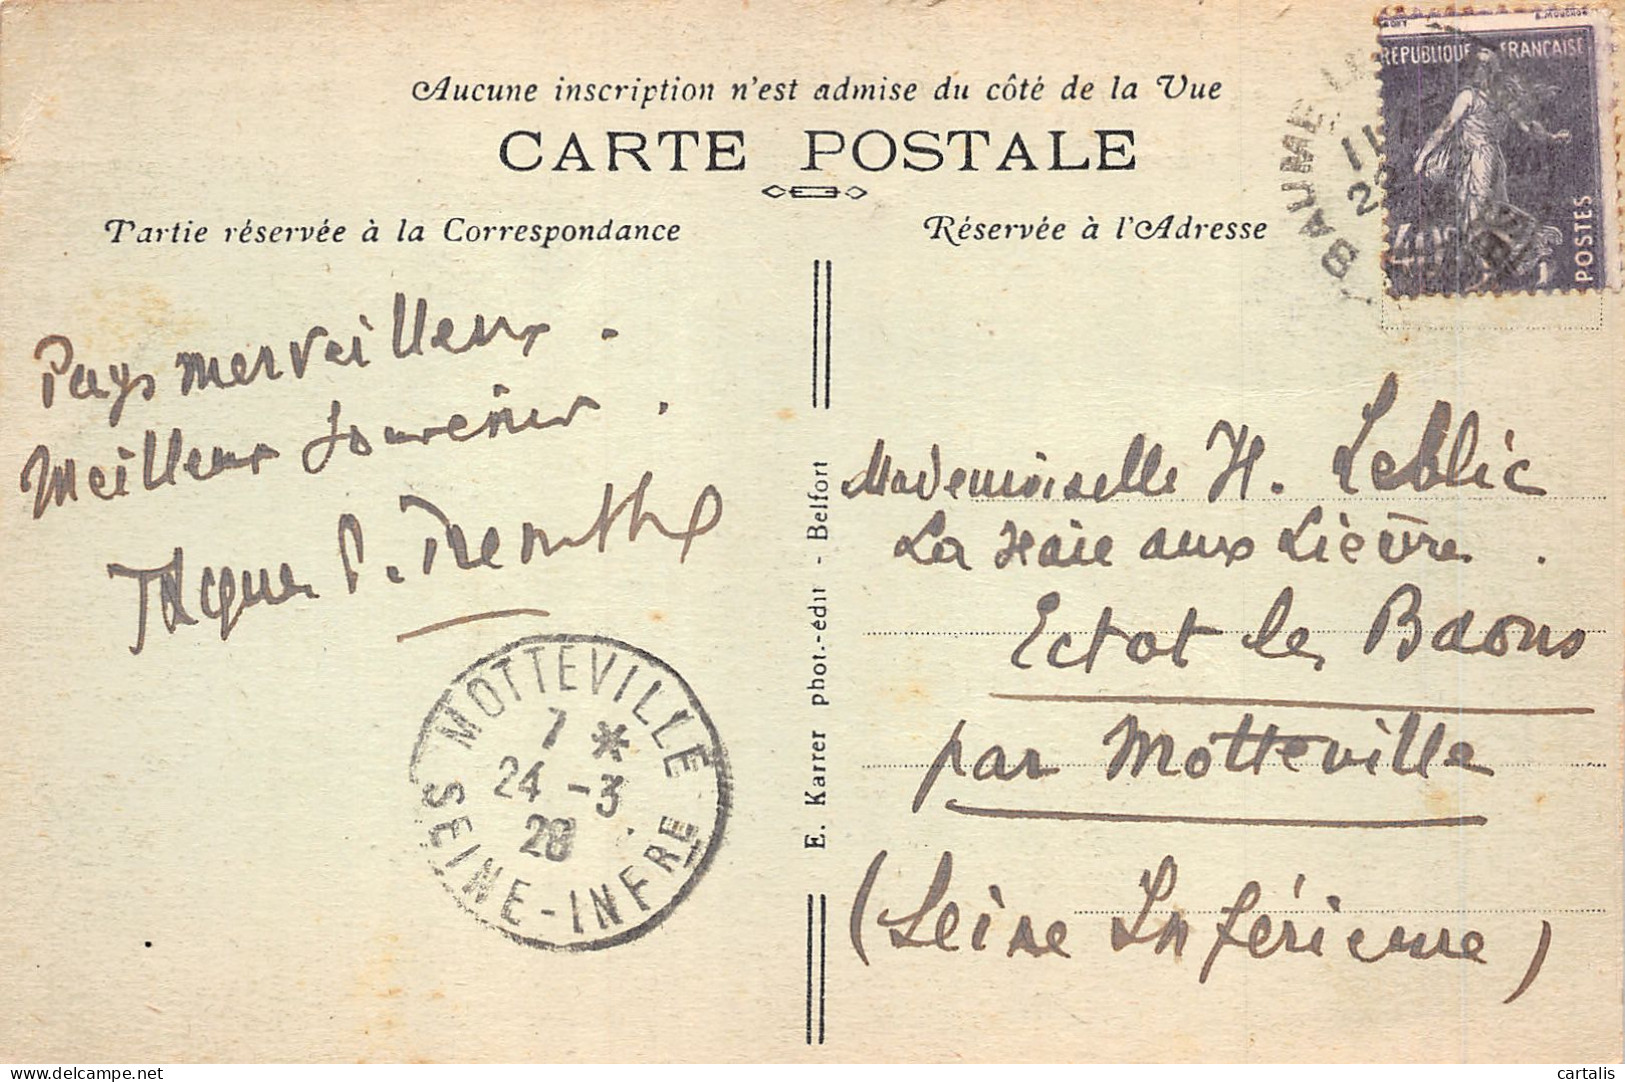 Aucune inscription n'est admise du côté de la Vue
CARTE POSTALE
Partie réservée à la Correspondance
Réservée à l'Adresse
REPUBLIQUE FRANCAISE
40c
POSTES
BAUME
11
Pays merveilleux.
Meilleur souvenir.
Jacques P.
MOTTEVILLE
7 *
24 -3
28
SEINE-INFRE
E. Karrer phot.-édit - Belfort
Mademoiselle H. Leblic
La Haie aux Lièvre.
Ectot les Baons
par Motteville
(Seine Inférieure)
cartalis